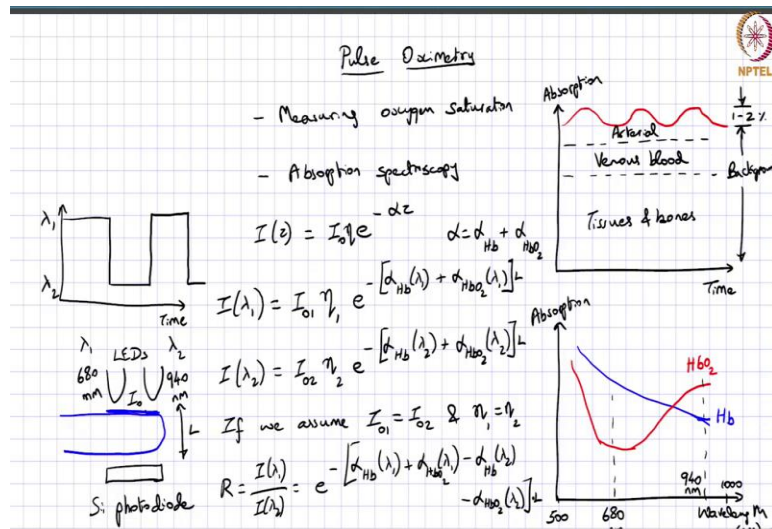 Pulse Oximetry
NPTEL
- Measuring oxygen saturation
- Absorption spectroscopy
I(z) = I₀ η e^{-αz}
α = α_{Hb} + α_{HbO₂}
I(λ₁) = I₀₁ η₁ e^{-[α_{Hb}(λ₁) + α_{HbO₂}(λ₁)]L}
I(λ₂) = I₀₂ η₂ e^{-[α_{Hb}(λ₂) + α_{HbO₂}(λ₂)]L}
If we assume I₀₁ = I₀₂ & η₁ = η₂
R = I(λ₁)/I(λ₂) = e^{-[α_{Hb}(λ₁) + α_{HbO₂}(λ₁) - α_{Hb}(λ₂)
- α_{HbO₂}(λ₂)]L}
λ₁
λ₂
Time
λ₁ LEDs λ₂
680 nm I₀ 940 nm
L
Si photodiode
Absorption
1-2 %
Arterial
Venous blood
Tissues & bones
Time
Absorption
HbO₂
Hb
500 680 940 nm 1000